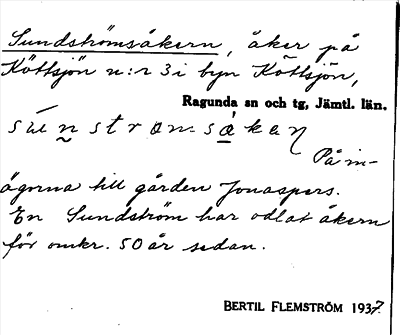 Sundströmsåkern, åker på
Köttsjön n:r 3 i byn Köttsjön,
Ragunda sn och tg, Jämtl. län.
súnstromsåkaɳ
På in-
ägorna till gården Jonaspers.
En Sundström har odlat åkern
för omkr. 50 år sedan.
BERTIL FLEMSTRÖM 1937.